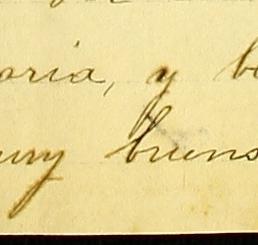 oria, y b
ury buens